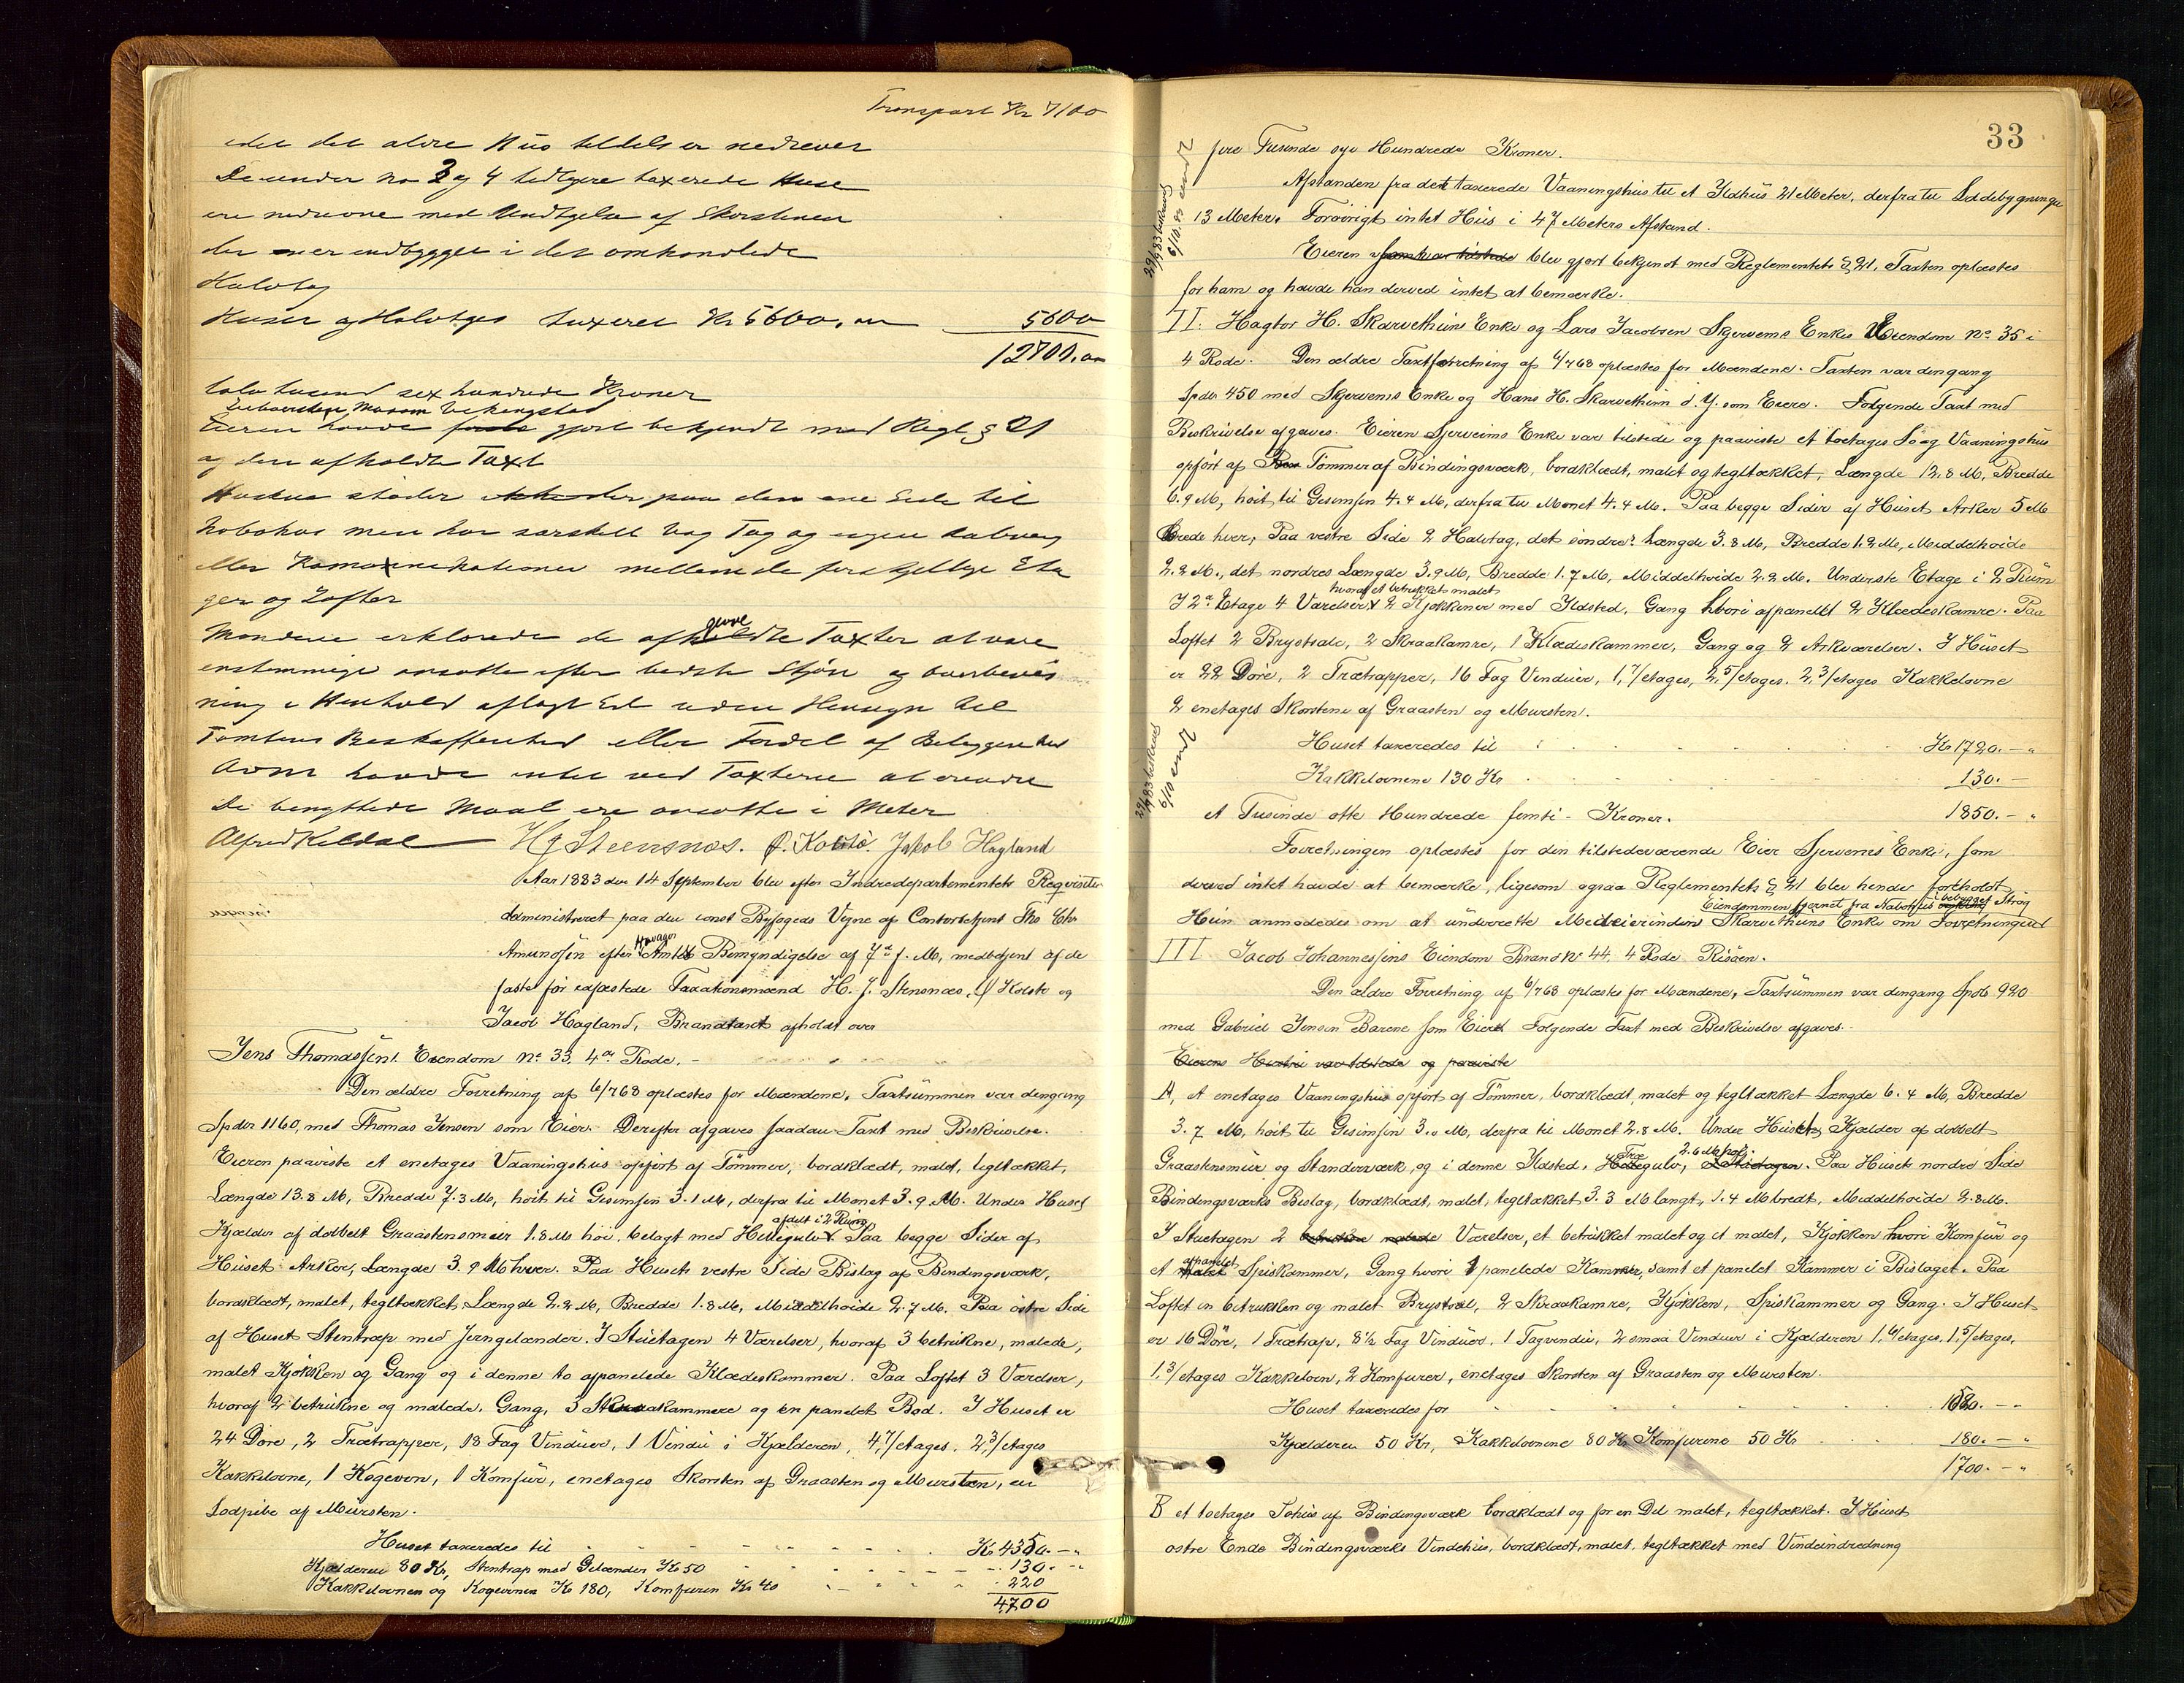 Transport Kr 7100
idet det ældre Hus tildels er nedrevet
De under No 3 og 4 tidligere taxerede Huse
ere nedrevne med Undtgelse af Skorstenen
der er indbygget i det omhandlede
Halvtag
Huset og Halvtaget taxeret Kr 5600,oo 5600
12700,oo
tolv tusend sex hundrede Kroner
Eieren havde gjort bekjendt med Regl. § 21
og den afholdte Taxt
Huset støder paa den ene Side til
Nabohus men har særskilt Væg Tag og ingen Aabning
eller Komonikationer mellem de forskjellige Eta
ger og Lofter
Mændene erklærede de afgivne Taxter at være
enstemmige ansatte efter bedste Skjøn og Overbevis
ning i Henhold aflagt Ed uden Hensyn til
Tomtens Beskaffenhed eller Fordel af Beliggenhed
havde intet ved Taxterne at erindre
De benyttede Maal ere ansatte i Meter
Alfred Keldal H J Steensnæs. O. Kolstø. Jakob Hagland
Aar 1883 den 14 September blev efter Indredepartementets Reqvisition
administreret paa den const Byfogeds Vegne af Contorbetjent Ths Chr
Amundsen efter Stavager Amts Bemyndigelse af 7de f. M., medbetjent af de
faste før edfæstede Taxationsmænd H. J. Stensnæs, O Kolstø og
Jacob Hagland, Brandtaxt afholdt over
Jens Thomassens Eiendom No 33, 4de Rode.
Den ældre Forretning af 6/7 68 oplæstes for Mændene. Taxtsummen var dengang
Spdr 1160, med Thomas Jensen som Eier. Derefter afgaves saadan Taxt med Beskrivelse.
Eieren paaviste et enetages Vaaningshus opført af Tømmer, bordklædt, malet, tegltækket,
Længde 13.8 M, Bredde 7.3 M, høit til Gesimsen 3.1 M, derfra til Mønet 3.9 M. Under Huset
Kjælder af dobbelt Graastensmuer 1.8 M høi, belagt med Hellegulv afdelt i 2 Rum. Paa begge Sider af
Huset Arker, Længde 3.9 M hver. Paa Husets vestre Side Bislag af Bindingsværk,
bordklædt, malet, tegltækket, Længde 2.2 M, Bredde 1.8 M, Middelhøide 2.7 M. Paa østre Side
af Huset Stentrap med Jerngelænder. I Stuetagen 4 Værelser, hvoraf 3 betrukne, malede,
malet Kjøkken og Gang og i denne to afpanelede Klædeskammer. Paa Loftet 3 Værelser,
hvoraf 2 betrukne og malede, Gang, 3 Skraakammere og en panelet Bod. I Huset er
24 Døre, 2 Trætrapper, 18 Fag Vinduer, 1 Vindu i Kjælderen, 4, 7/etages, 2, 3/etages
Kakkelovne, 1 Kogeovn, 1 Komfur, enetages Skorsten af Graasten og Mursten, en
Lodpibe af Mursten.
Huset taxeredes til Kr 4350.-"
Kjælderen 80 Kr, Stentrap med Gelænder Kr 50 130.-"
Kakkelovnen og Kogeovnen Kr 180, Komfuren Kr 40 220
4700
33
fire Tusinde syv Hundrede Kroner.
Afstanden fra det taxerede Vaaningshus til et Ildhus 21 Meter, derfra til Søddebygninger
13 Meter. Forøvrigt intet Hus i 47 Meters Afstand.
Eieren som var tilstede blev gjort bekjendt med Reglementets § 21. Taxten oplæstes
for ham og havde han derved intet at bemærke.
II. Hagtor H. Skarvethuns Enke og Lars Jacobsen Skjervems Enkes Eiendom No 35 i
4 Rode. Den ældre Taxtforretning af 6/7 68 oplæstes for Mændene. Taxten var dengang
Spdr 450 med Skjervems Enke og Hans H. Skarvethun d.Y. som Eiere. Følgende Taxt med
Beskrivelse afgaves. Eieren Sjerveims Enke var tilstede og paaviste et toetages Sø og Vaaningshus
opført af Tømmer af Bindingsværk, bordklædt, malet og tegltækket, Længde 12.8 M, Bredde
6.9 M, høit til Gesimsen 4.4 M, derfra til Mønet 4.4 M. Paa begge Sider af Huset Arker 5 M
brede hver, Paa vestre Side 2 Halvtag, det søndres Længde 3.8 M, Bredde 1.2 M, Middelhøide
2.2 M., det nordres Længde 3.9 M, Bredde 1.7 M, Middelhøide 2.2 M. Underste Etage i 2 Rum
I 2den Etage 4 Værelser hvoraf et betrukket malet 2 Kjøkkener med Ildsted, Gang hvori afpanelet 2 Klædeskamre. Paa
Loftet 2 Brystsale, 2 Skraakamre, 1 Klædeskammer, Gang og 2 Arkværelser. I Huset
er 22 Døre, 2 Trætrapper, 16 Fag Vinduer, 1, 7/etages, 2, 5/etages, 2, 3/etages Kakkelovne
2 enetages Skorstene af Graasten og Mursten.
Huset taxeredes til Kr 1720.-"
Kakkelovnene 130 Kr 130.-
et Tusinde otte Hundrede femti - Kroner. 1850.-"
Forretningen oplæstes for den tilstedeværende Eier Sjervems Enke, som
derved intet havde at bemærke, ligesom ogsaa Reglementets § 21 blev hende foreholdt
Eiendommen fjernet fra Nabohus i bebygget Strøg
Hun anmodedes om at underrette Medeierinden Skarvethuns Enke om Forretningen
III. Jacob Johannessens Eiendom Brand No 44, 4 Rode Risøen.
Den ældre Forretning af 6/7 68 oplæstes for Mændene, Taxtsummen var dengang Spdr 920
med Gabriel Jensen Barene som Eier. Følgende Taxt med Beskrivelse afgaves.
Eierens Hustru var tilstede og paaviste
A, et enetages Vaaningshus opført af Tømmer, bordklædt, malet og tegltækket Længde 6.4 M, Bredde
3.7 M, høit til Gesimsen 3.0 M, derfra til Mønet 2.8 M. Under Huset Kjælder af dobbelt
Graastensmuer og Standerværk, og i denne Ildsted, Trægulv, 2.6 M høi. Paa Husets nordre Side
Bindingsværks Bislag, bordklædt, malet, tegltækket 3.3 M langt, 1.4 M bredt, Middelhøide 2.8 M.
I Stuetagen 2 Værelser, et betrukket malet og et malet, Kjøkken hvori Komfur og
et afpanelet Spiskammer, Gang hvori 1 panelede Kammer, samt et panelet Kammer i Bislaget. Paa
Loftet en betrukken og malet Brystsal, 2 Skraakamre, Kjøkken, Spiskammer og Gang. I Huset
er 16 Døre, 1 Trætrap, 8½ Fag Vinduer, 1 Tagvindu, 2 smaa Vinduer i Kjælderen 1, 4/etages, 1, 5/etages,
1, 3/etages Kakkelovn, 2 Komfurer, enetages Skorsten af Graasten og Mursten.
Huset taxeredes for 1520.-"
Kjælderen 50 Kr, Kakkelovnene 80 Kr Komfurene 50 Kr 180.-"
1700.-"
B et toetages Søhus af Bindingsværk bordklædt og for en Del malet, tegltækket. I Husets
østre Ende Bindingsværks Vindehus, bordklædt, malet, tegltækket med Vindeindredning